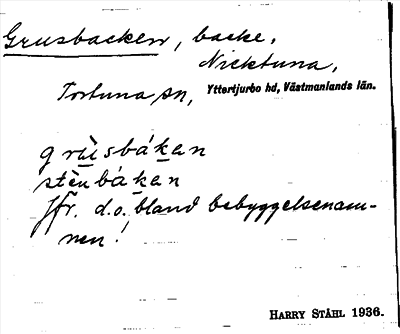 Grusbacken, backe,
Nicktuna,
Tortuna sn, Yttertjurbo hd, Västmanlands län.
gru̇̀sbákan
stènbákan
Jfr. d.o. bland bebyggelsenam-
nen!
HARRY STÅHL 1936.